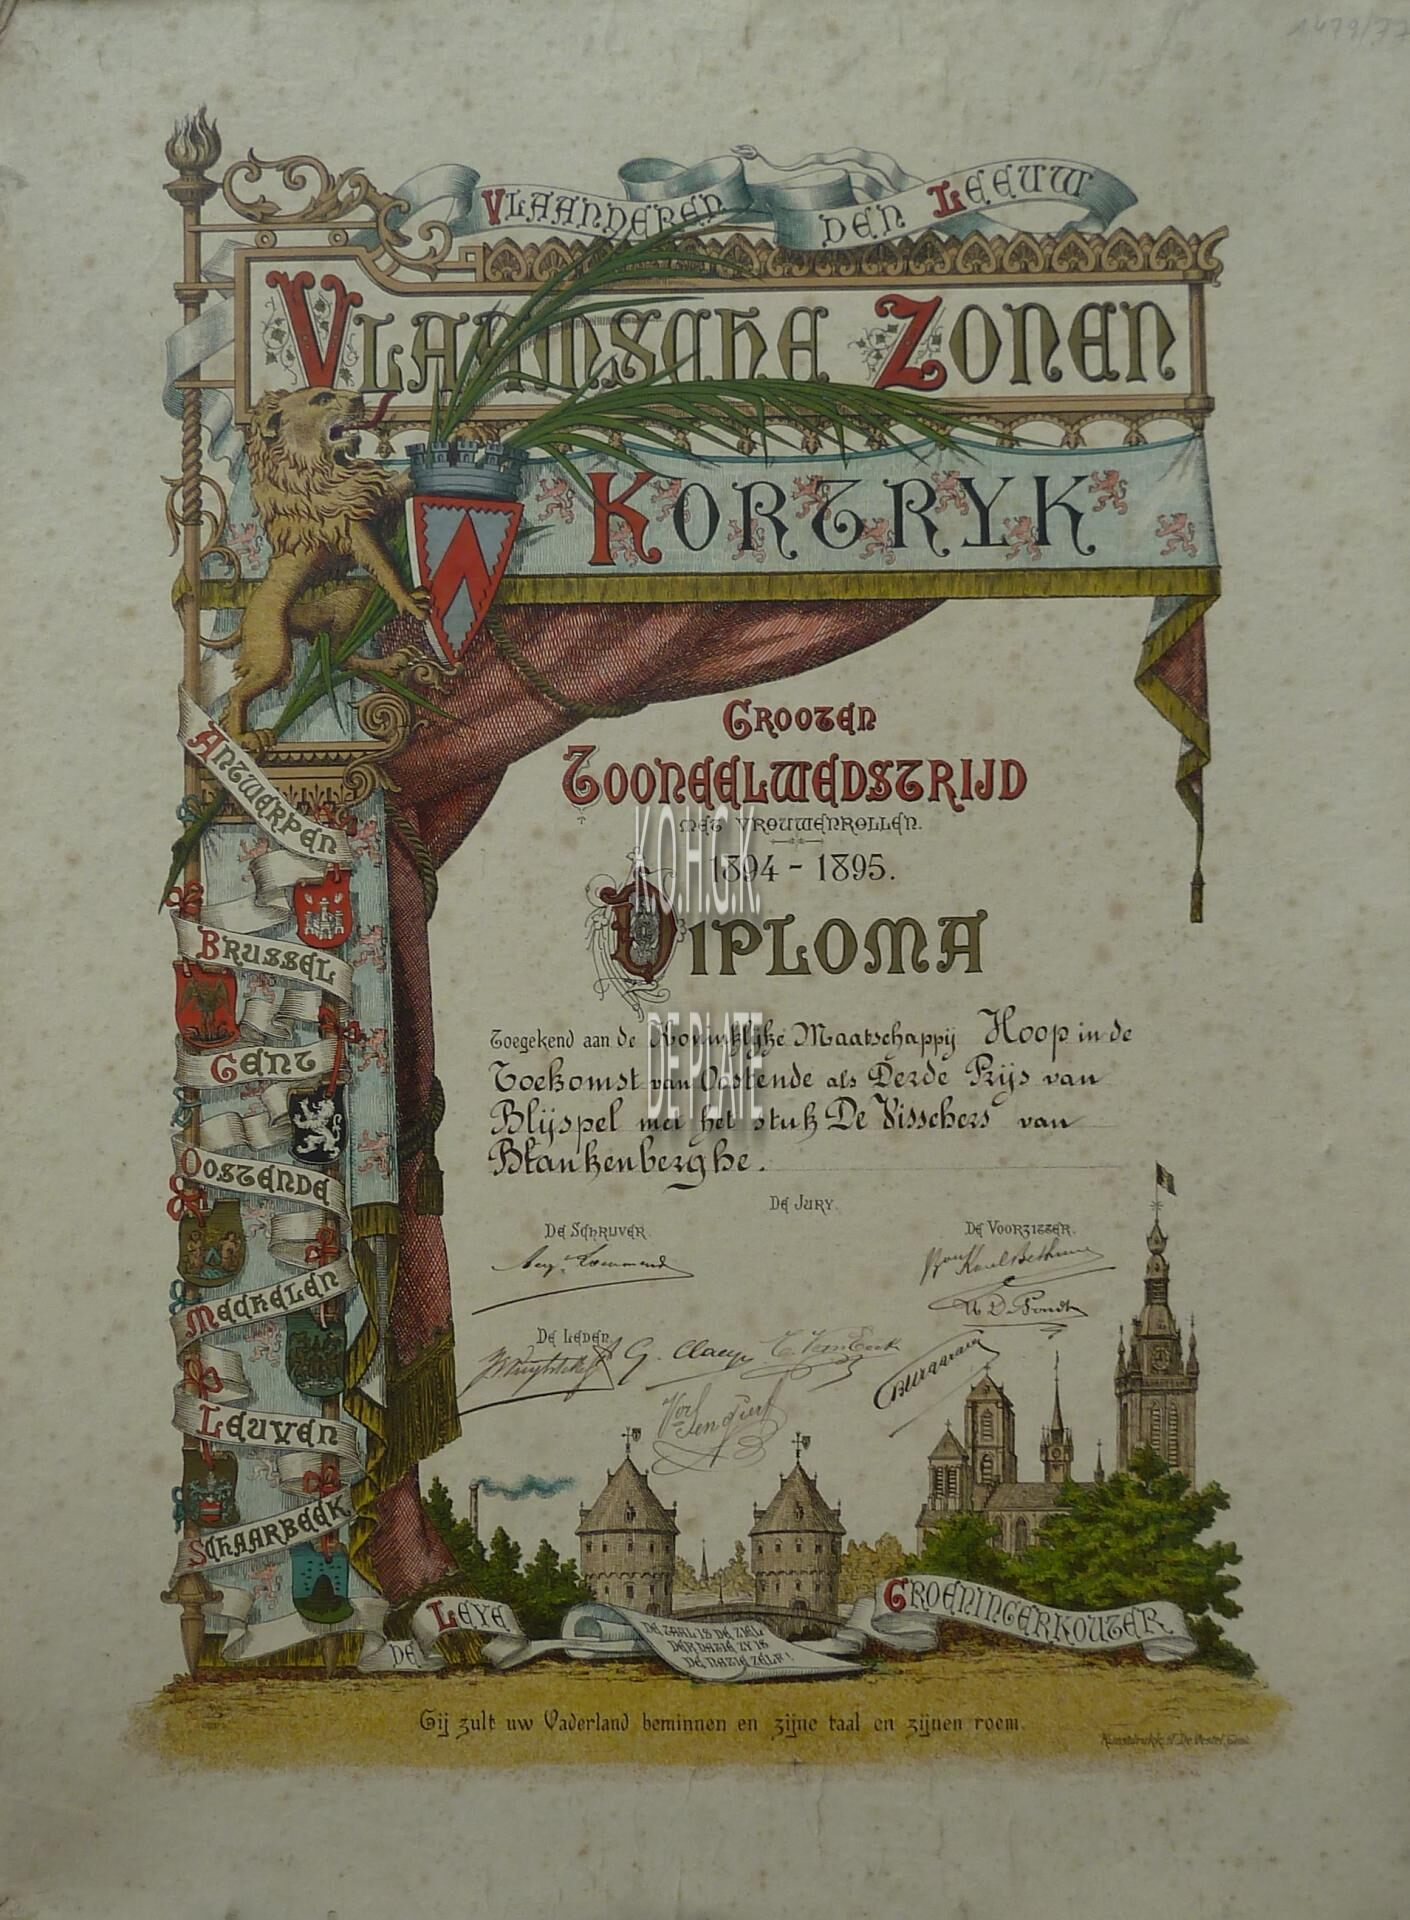 1479/77
VLAANDEREN DEN LEEUW
VLAAMSCHE ZONEN
KORTRYK
GROOTEN
TOONEELWEDSTRIJD
MET VROUWENROLLEN.
1894 - 1895.
DIPLOMA
Toegekend aan de Koninklijke Maatschappij Hoop in de
Toekomst van Oostende als Derde Prijs van
Blijspel met het stuk De Visschers van
Blankenberghe.
DE JURY.
DE SCHRIJVER.
DE VOORZITTER.
DE LEDEN.
G. Claeys
ANTWERPEN
BRUSSEL
GENT
OOSTENDE
MECHELEN
LEUVEN
SCHAARBEEK
DE LEYE
DE TAAL IS DE ZIEL
DER NATIE ZY IS
DE NATIE ZELF!
GROENINGERKOUTER
Gij zult uw Vaderland beminnen en zijne taal en zijnen roem.
Kunstdrukk.
K.O.H.G.K.
DE PLATE